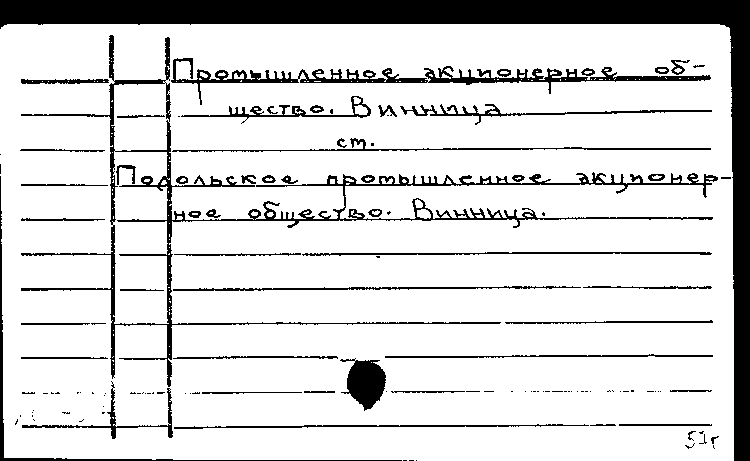 Промышленное акционерное об-
щество. Винница
ст.
Подольское промышленное акционер-
ное общество. Винница.
51г